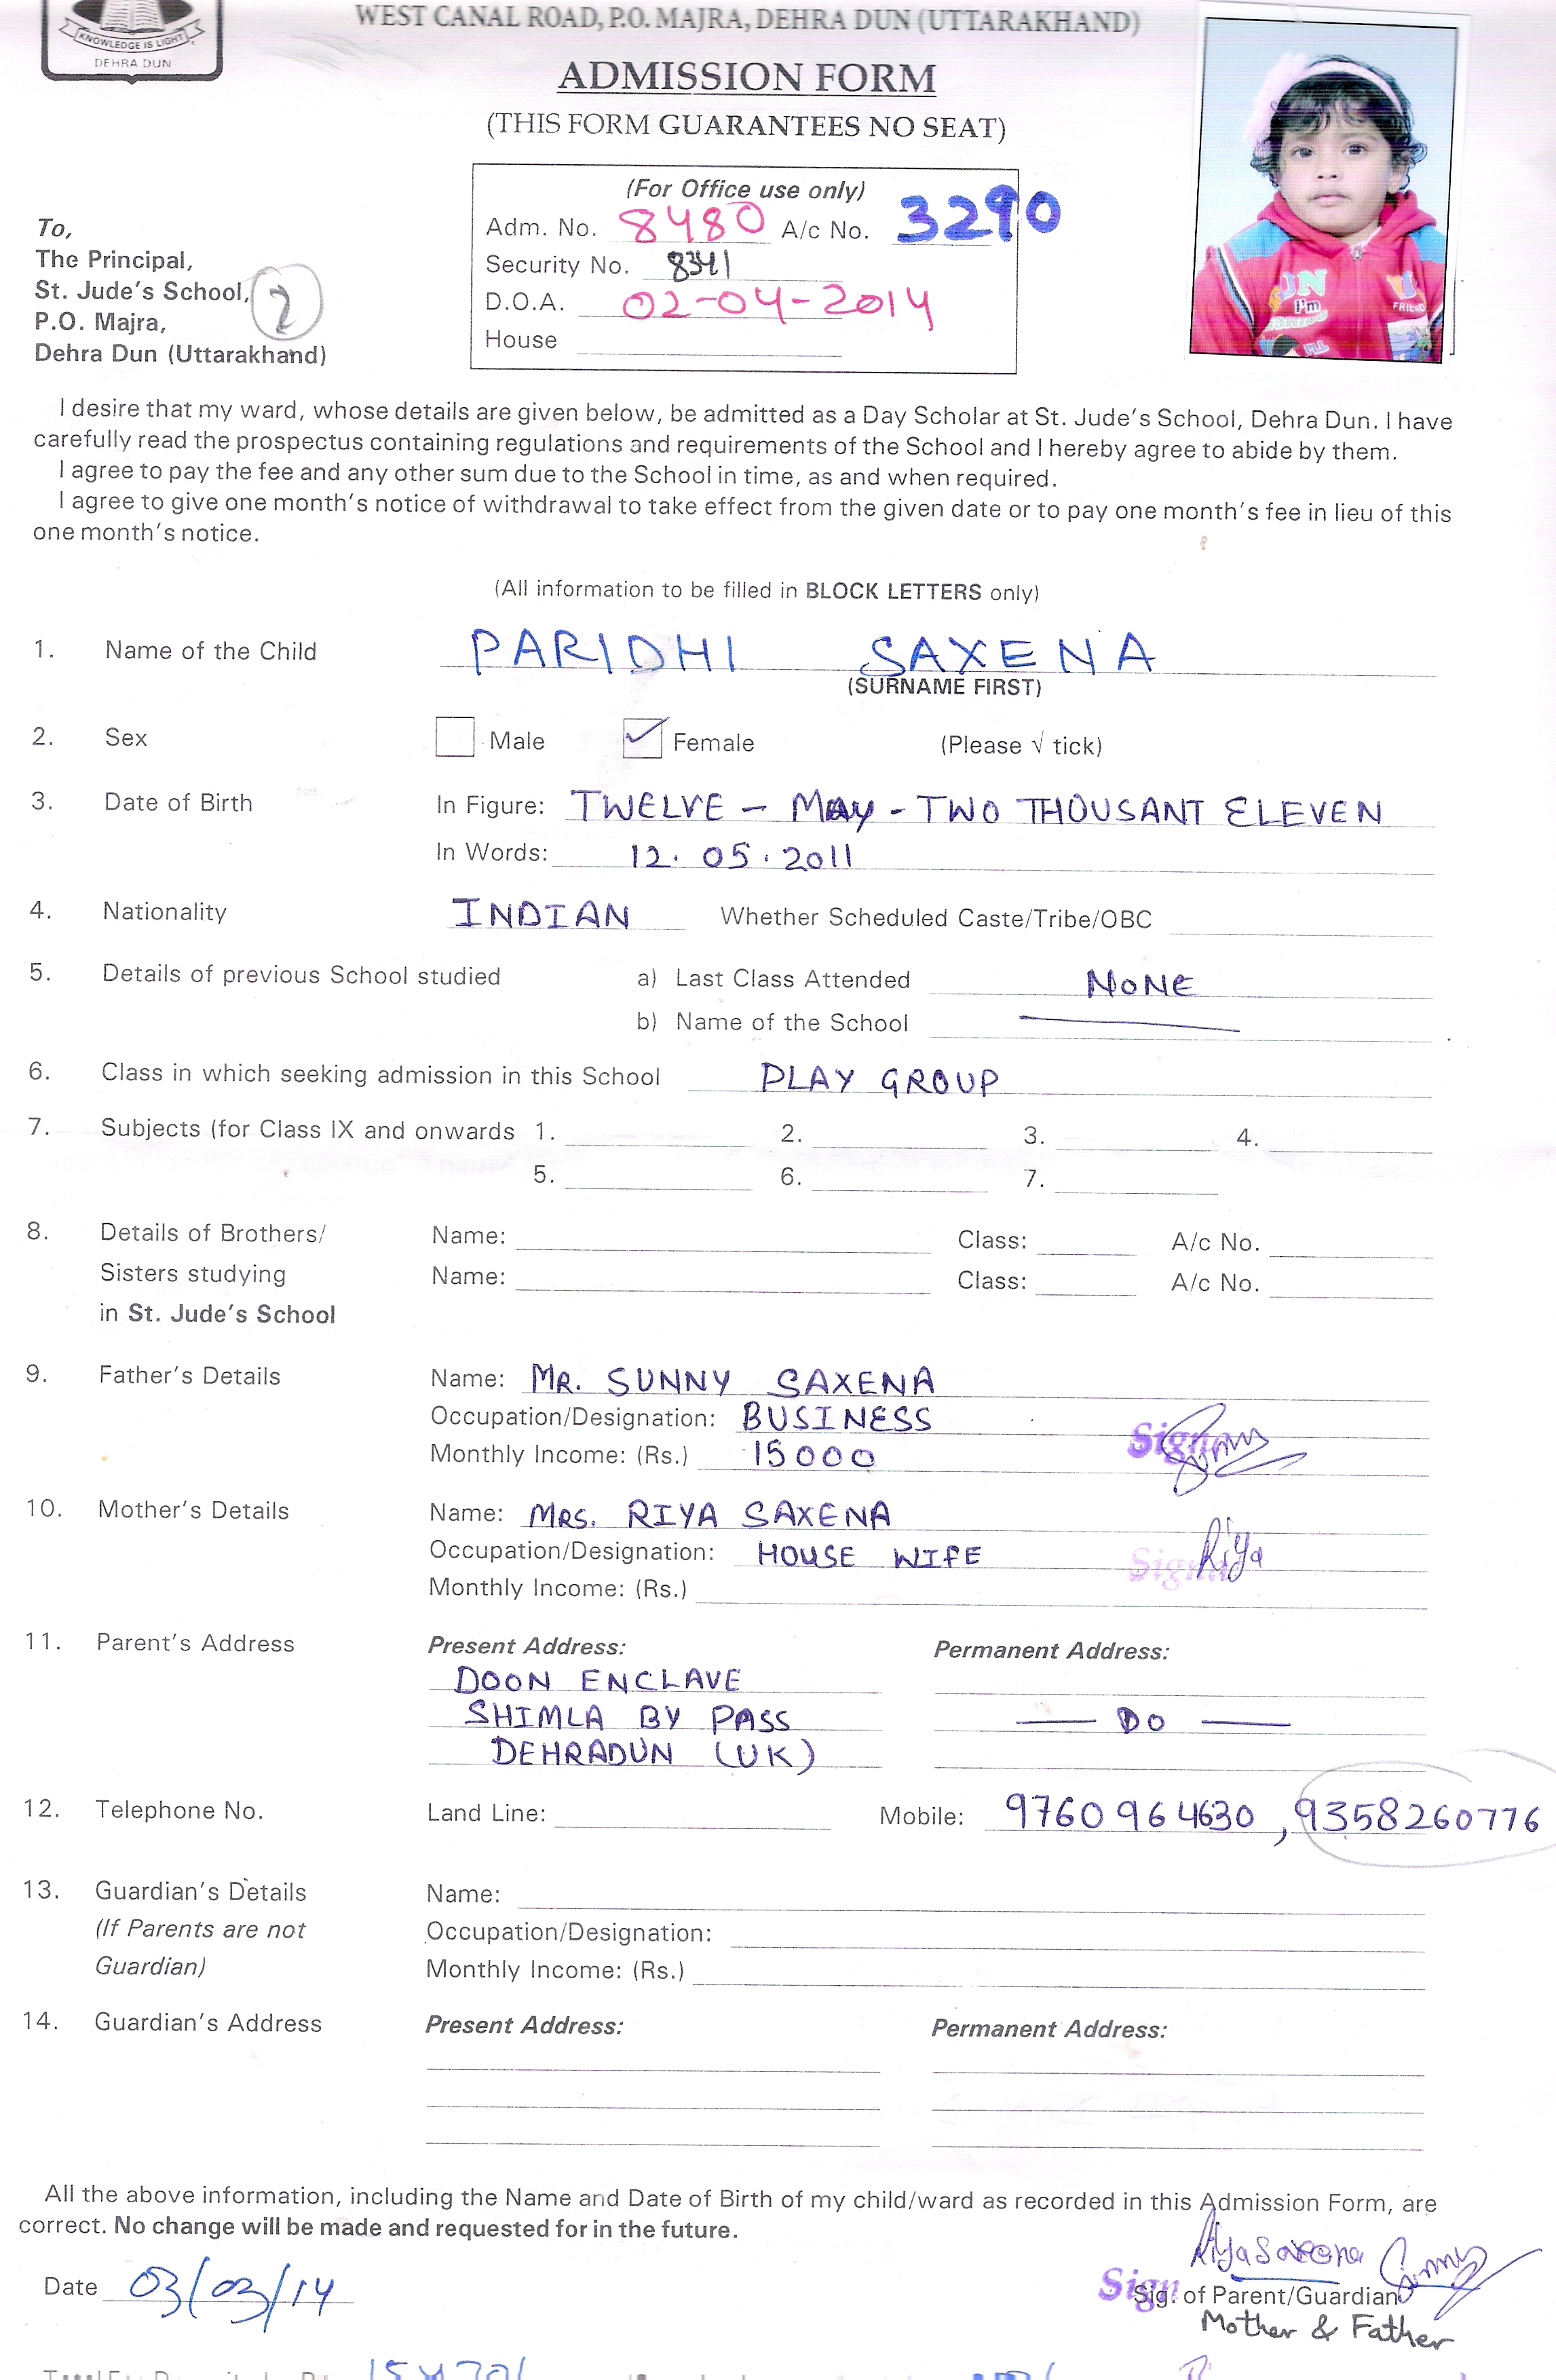 WEST CANAL ROAD, P.O. MAJRA, DEHRA DUN (UTTARAKHAND)
KNOWLEDGE IS LIGHT
DEHRA DUN
ADMISSION FORM
(THIS FORM GUARANTEES NO SEAT)
(For Office use only)
Adm. No. 8480 A/c No. 3290
Security No. 8341
D.O.A. 02-04-2014
House
To,
The Principal,
St. Jude's School,
2
P.O. Majra,
Dehra Dun (Uttarakhand)
I'm
FRIEND
I desire that my ward, whose details are given below, be admitted as a Day Scholar at St. Jude's School, Dehra Dun. I have
carefully read the prospectus containing regulations and requirements of the School and I hereby agree to abide by them.
I agree to pay the fee and any other sum due to the School in time, as and when required.
I agree to give one month's notice of withdrawal to take effect from the given date or to pay one month's fee in lieu of this
one month's notice.
(All information to be filled in BLOCK LETTERS only)
1. Name of the Child PARIDHI SAXENA
(SURNAME FIRST)
2. Sex Male ✓ Female (Please √ tick)
3. Date of Birth In Figure: TWELVE - MAY - TWO THOUSANT ELEVEN
In Words: 12.05.2011
4. Nationality INDIAN Whether Scheduled Caste/Tribe/OBC
5. Details of previous School studied a) Last Class Attended NONE
b) Name of the School
6. Class in which seeking admission in this School PLAY GROUP
7. Subjects (for Class IX and onwards 1. 2. 3. 4.
5. 6. 7.
8. Details of Brothers/ Name: Class: A/c No.
Sisters studying Name: Class: A/c No.
in St. Jude's School
9. Father's Details Name: MR. SUNNY SAXENA
Occupation/Designation: BUSINESS
Monthly Income: (Rs.) 15000
10. Mother's Details Name: MRS. RIYA SAXENA
Occupation/Designation: HOUSE WIFE Riya
Monthly Income: (Rs.)
11. Parent's Address Present Address: Permanent Address:
DOON ENCLAVE
SHIMLA BY PASS — DO —
DEHRADUN (UK)
12. Telephone No. Land Line: Mobile: 9760964630, 9358260776
13. Guardian's Details Name:
(If Parents are not Occupation/Designation:
Guardian) Monthly Income: (Rs.)
14. Guardian's Address Present Address: Permanent Address:
All the above information, including the Name and Date of Birth of my child/ward as recorded in this Admission Form, are
correct. No change will be made and requested for in the future.
Riya Saxena
Date 03/03/14 Sig. of Parent/Guardian
Mother & Father